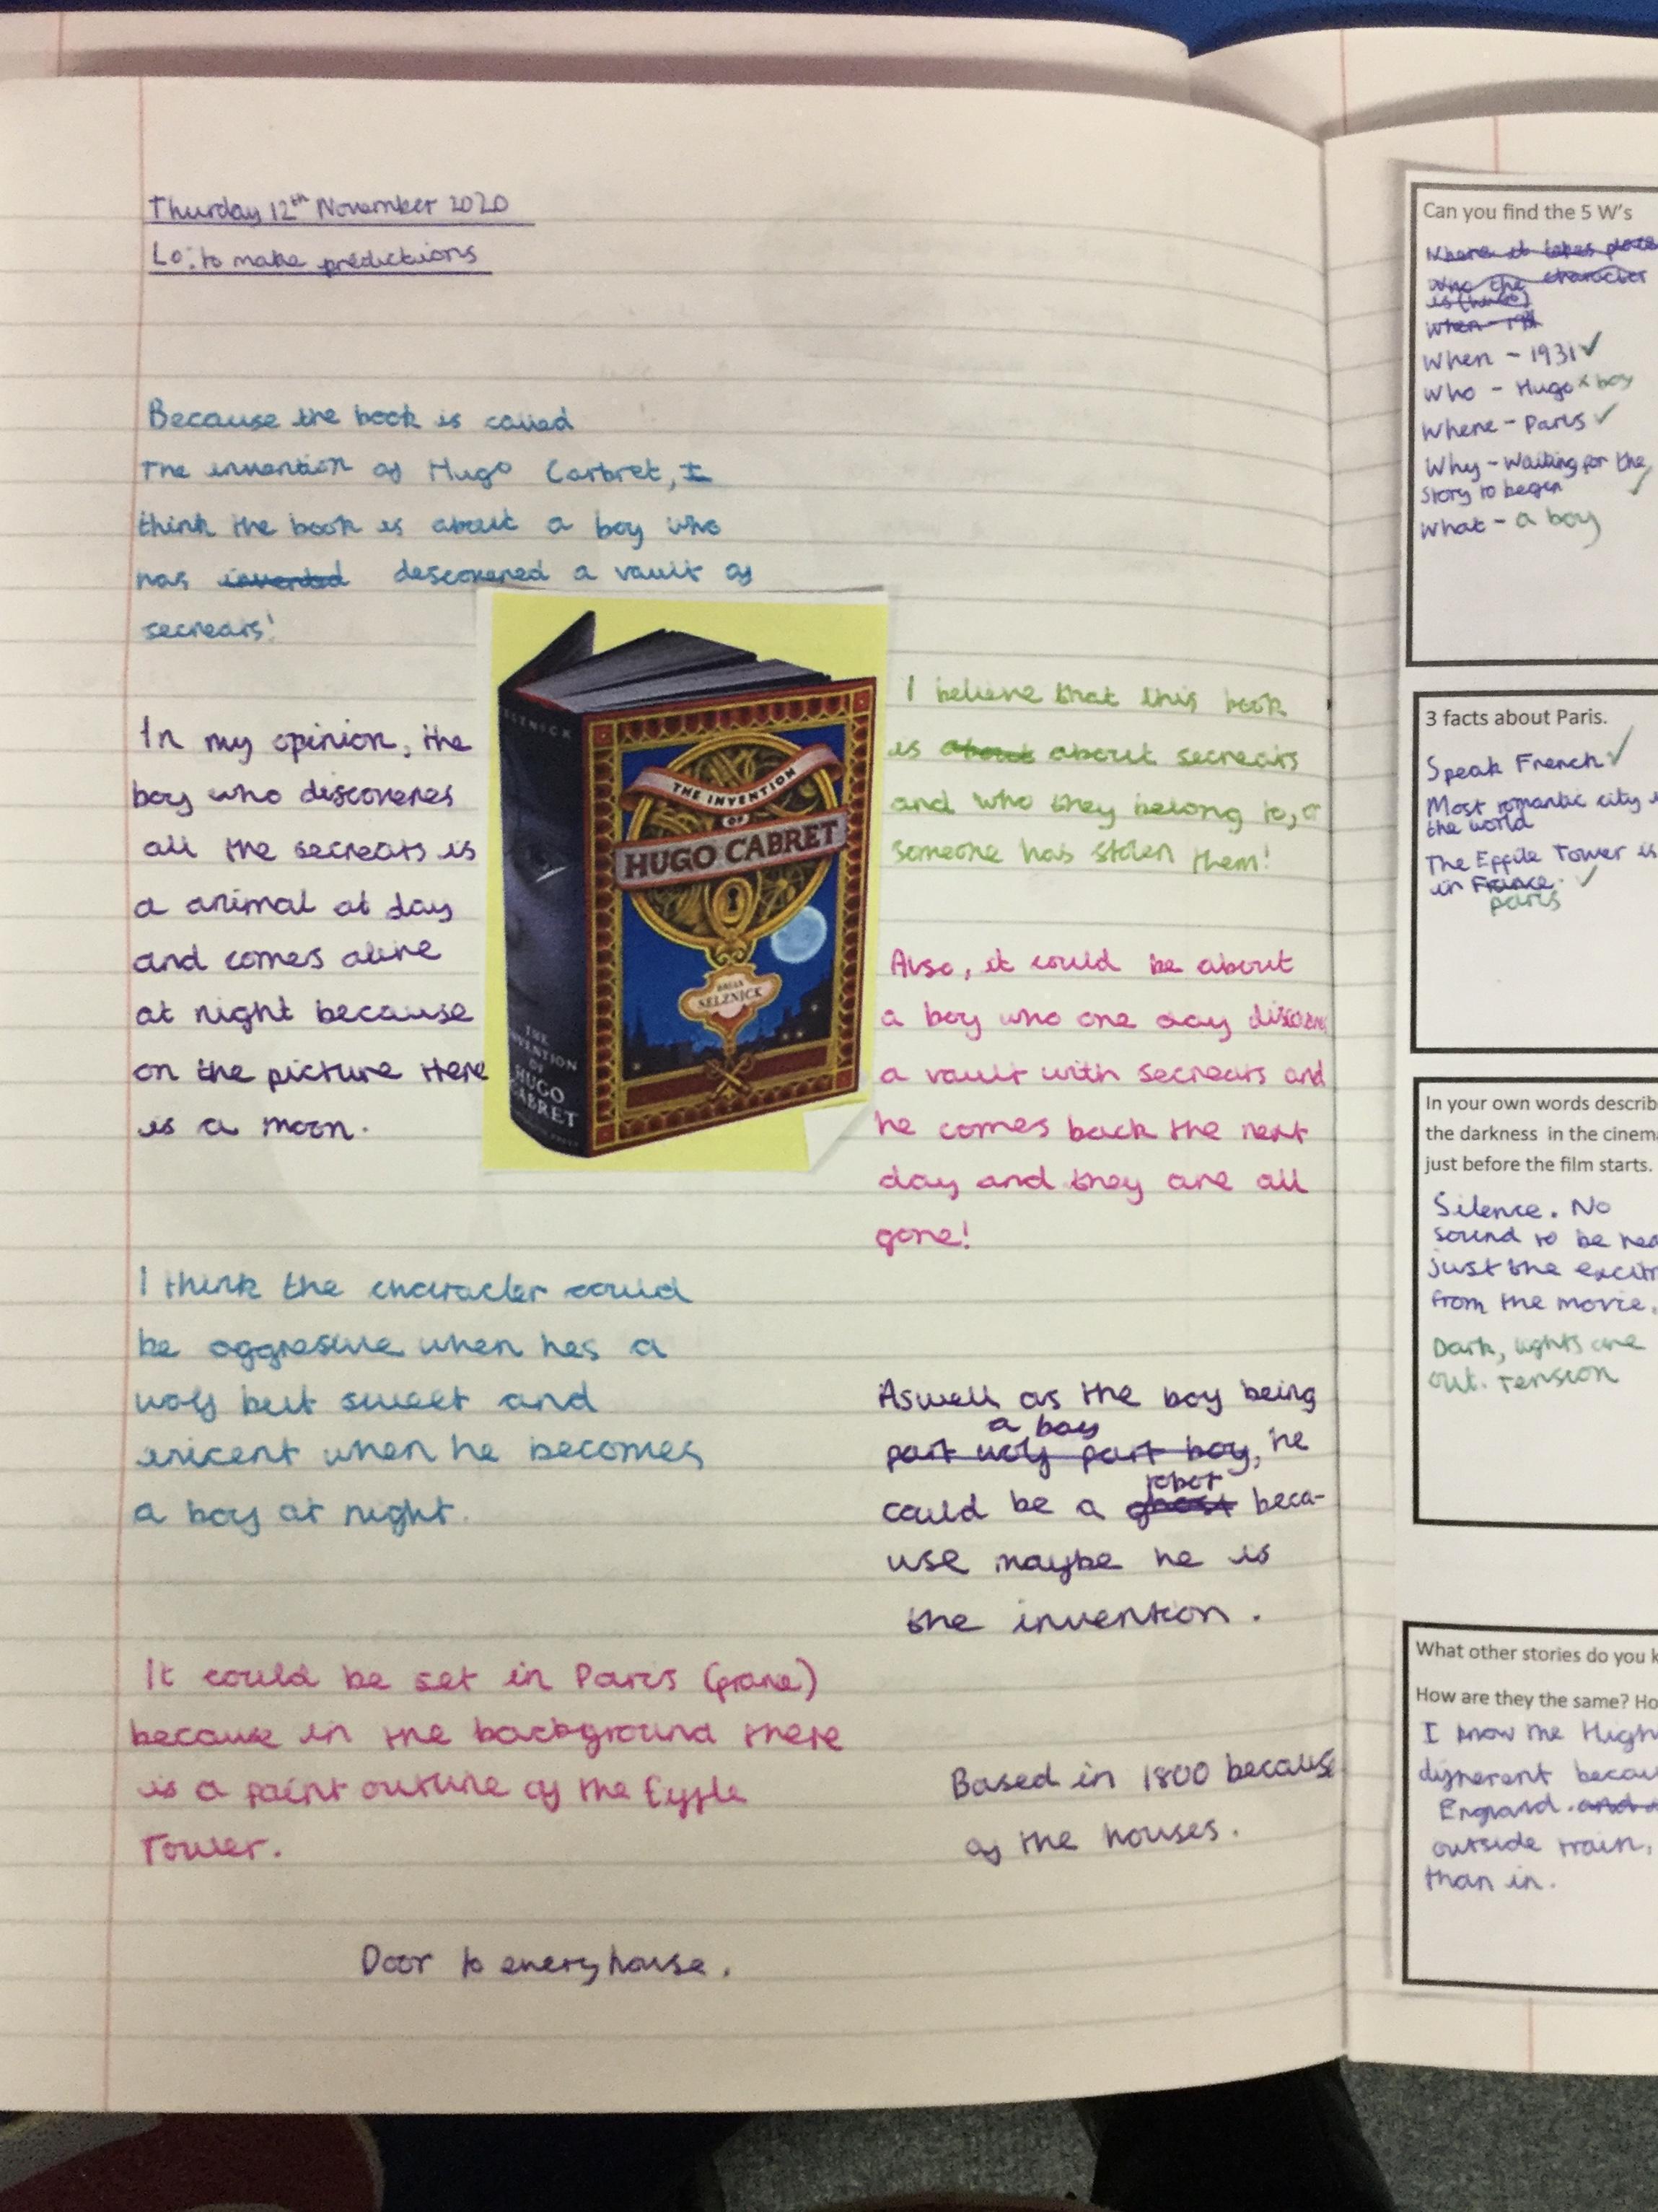 Thurday 12th November 2020
Lo: to make predictions
Because the book is called
The invention of Hugo Carbret, I
think the book is about a boy who
has invented descovered a vault of
secreats!
In my opinion, the
boy who discoveres
all the secreats is
a animal at day
and comes alive
at night because
on the picture there
is a moon.
SELZNICK
THE
INVENTION
OF
HUGO
CABRET
THE INVENTION
OF
HUGO CABRET
BRIAN
SELZNICK
I believe that this book
is about about secreats
and who they belong to, or
someone has stolen them!
Also, it could be about
a boy who one day discovers
a vault with secreats and
he comes back the next
day and they are all
gone!
I think the character could
be aggresive when hes a
wolf but sweet and
inicent when he becomes
a boy at night.
Aswell as the boy being
a boy
part wolf part boy, he
robot
could be a ghost beca-
use maybe he is
the invention.
It could be set in Paris (frane)
because in the background there
is a faint outline of the Eyfle
Tower.
Based in 1800 because
of the houses.
Door to every house.
Can you find the 5 W's
Where it takes place
Who the character
is (hugo)
When - 193
When - 1931 ✓
Who - Hugo x boy
Where - Paris ✓
Why - Waiting for the
story to begin ✓
What - a boy
3 facts about Paris.
Speak French ✓
Most romantic city
the world
The Effile Tower is
in France. ✓
Paris
In your own words describ
the darkness in the cinema
just before the film starts.
Silence. No
sound to be hea
just the excit
from the movie.
Dark, lights are
out. Tension
What other stories do you k
How are they the same? Ho
I know the High
different becau
England. and
outside train,
than in.